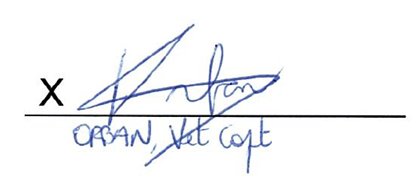 X
ORBAN, Vet Cpt